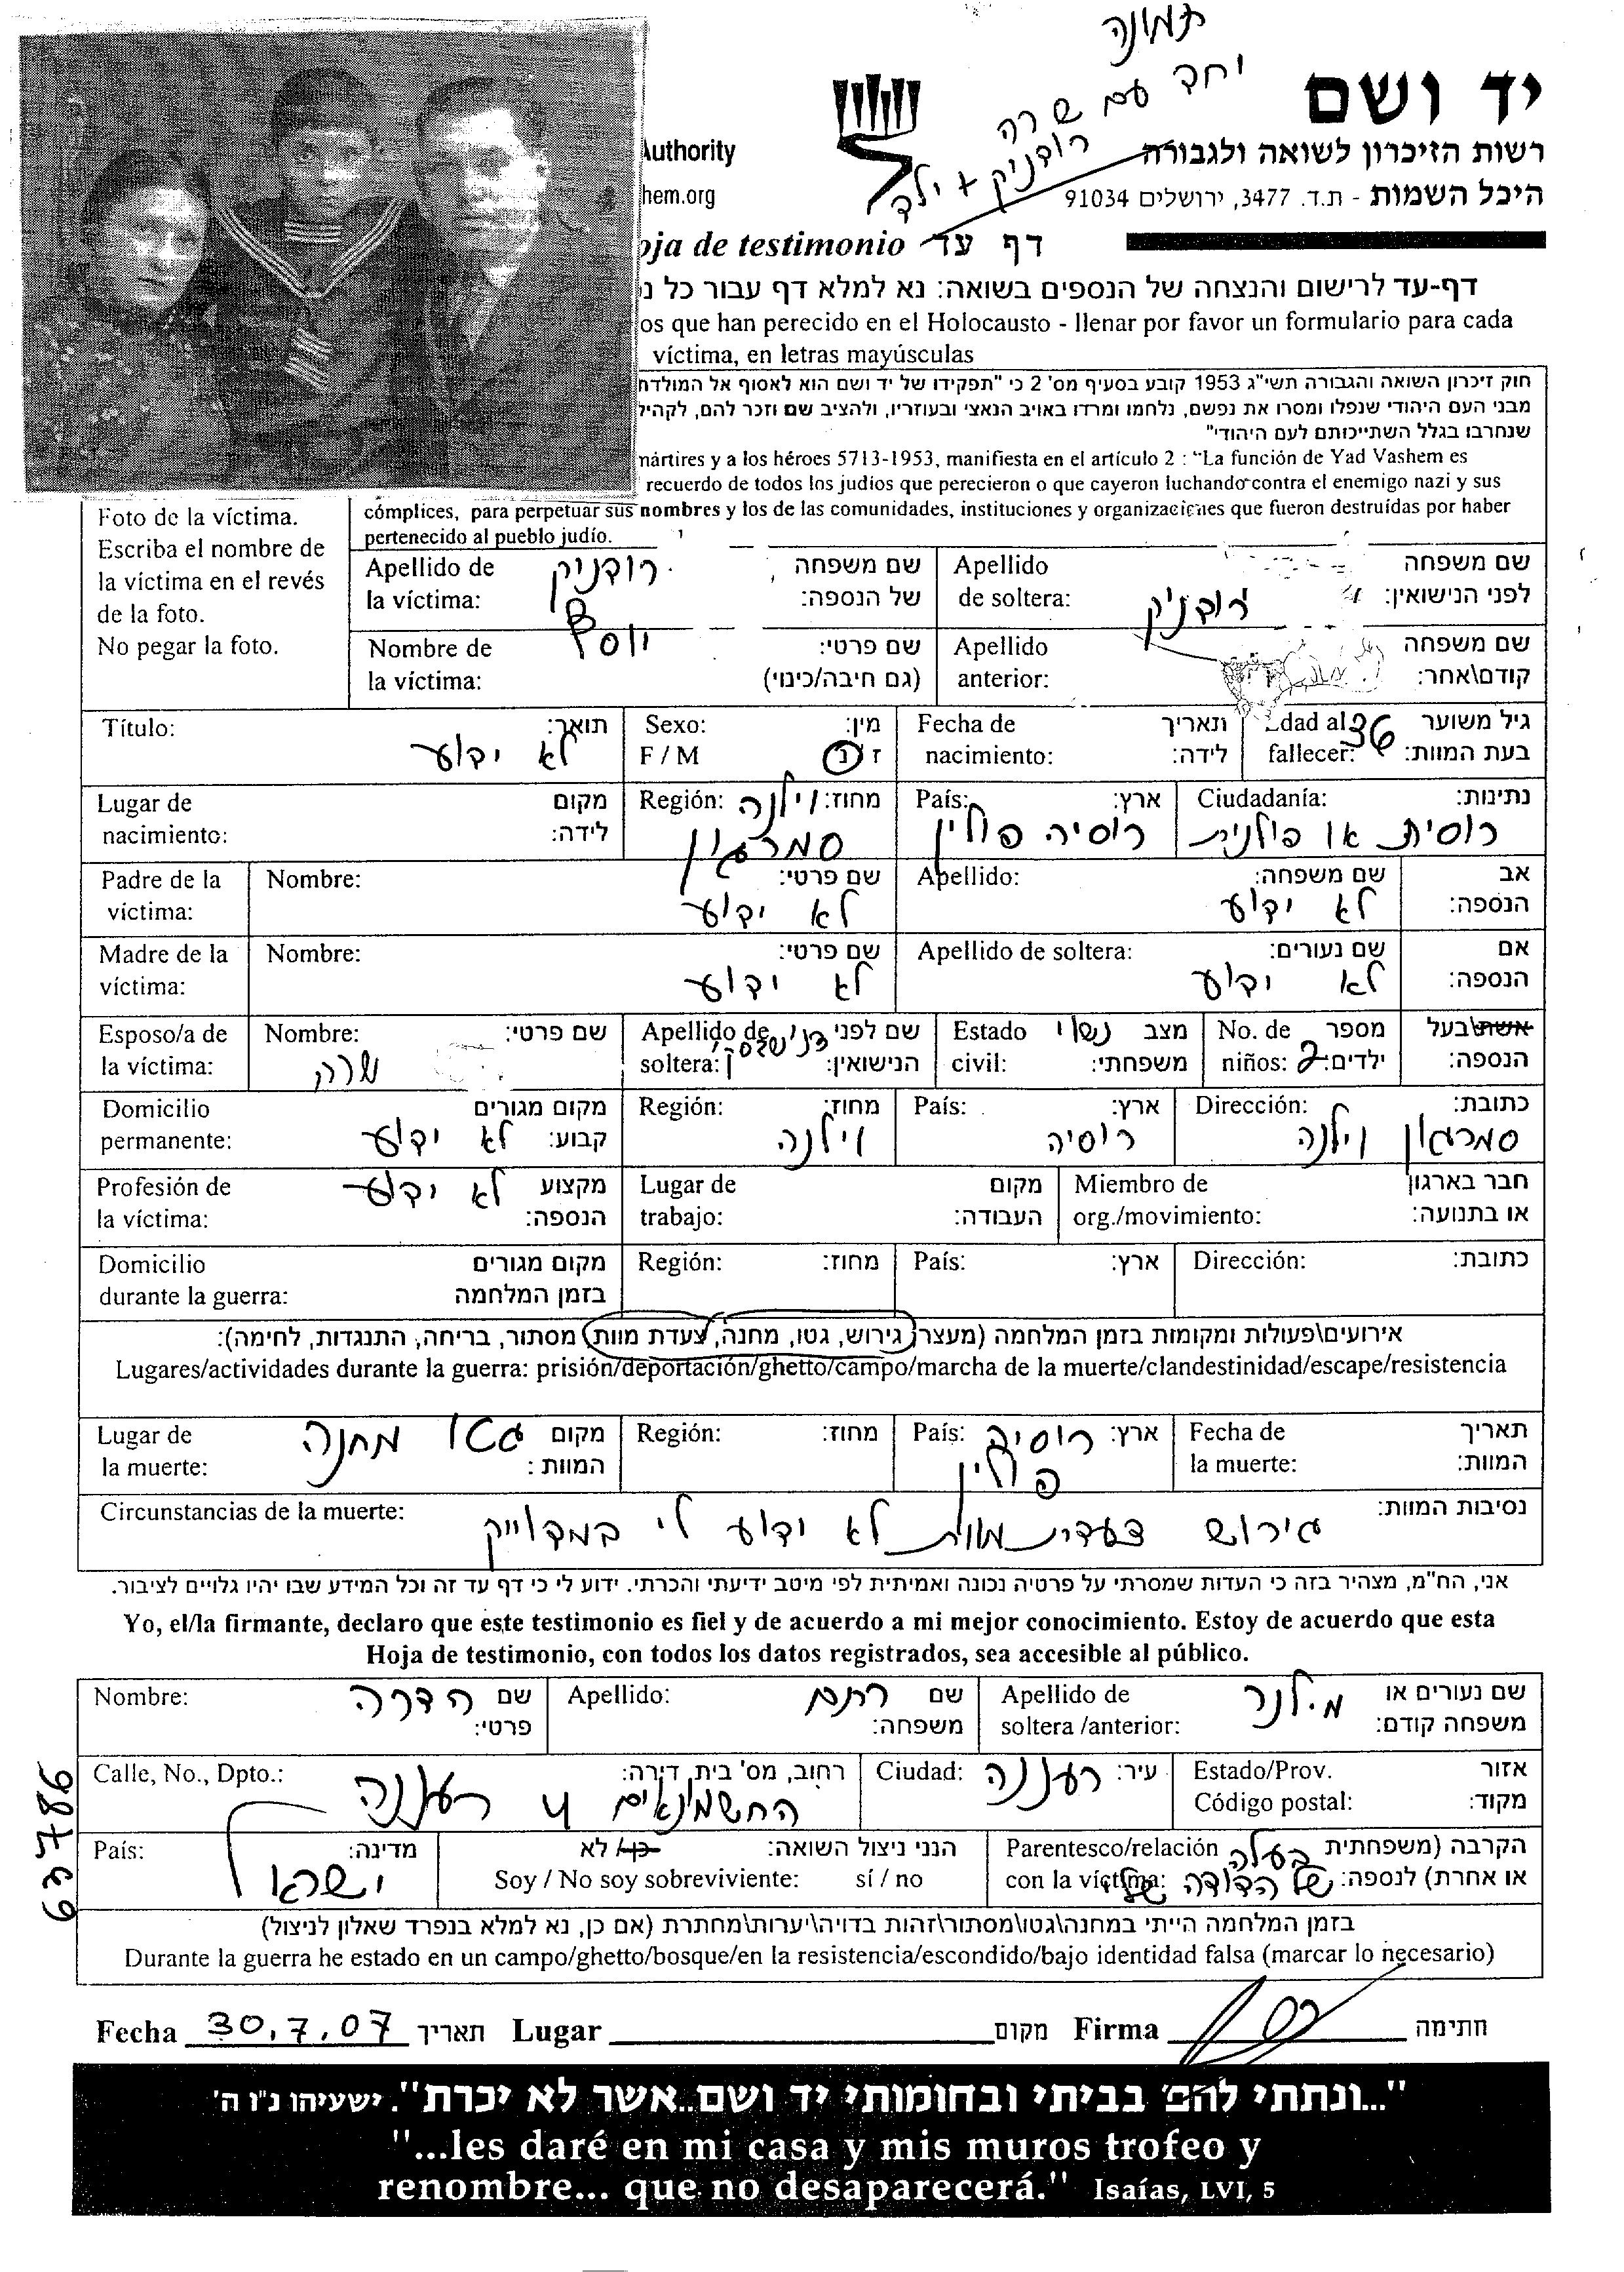 תמונה
יחד עם שרה
רודניק + ילד
יד ושם
Authority
רשות הזיכרון לשואה ולגבורה
hem.org
היכל השמות - ת.ד. 3477, ירושלים 91034
oja de testimonio דף עד
דף-עד לרישום והנצחה של הנספים בשואה: נא למלא דף עבור כל נ
os que han perecido en el Holocausto - llenar por favor un formulario para cada
víctima, en letras mayúsculas
חוק זיכרון השואה והגבורה תשי"ג 1953 קובע בסעיף מס' 2 כי "תפקידו של יד ושם הוא לאסוף אל המולדת
מבני העם היהודי שנפלו ומסרו את נפשם, נלחמו ומרדו באויב הנאצי ובעוזריו, ולהציב שם וזכר להם, לקהיל
שנחרבו בגלל השתייכותם לעם היהודי"
mártires y a los héroes 5713-1953, manifiesta en el artículo 2 : "La función de Yad Vashem es
recuerdo de todos los judíos que perecieron o que cayeron luchando contra el enemigo nazi y sus
cómplices, para perpetuar sus nombres y los de las comunidades, instituciones y organizaciones que fueron destruídas por haber
pertenecido al pueblo judío.
Foto de la víctima.
Escriba el nombre de
la víctima en el revés
de la foto.
No pegar la foto.
Apellido de la víctima: רודניק שם משפחה של הנספה:
Apellido de soltera: רודניק שם משפחה לפני הנישואין:
Nombre de la víctima: יוסף שם פרטי: (גם חיבה/כינוי)
Apellido anterior: שם משפחה קודם\אחר:
Título: תואר: לא ידוע
Sexo: F / M מין: ז' נ'
Fecha de nacimiento: תאריך לידה:
Edad al fallecer: 36 גיל משוער בעת המוות:
Lugar de nacimiento: מקום לידה:
Región: מחוז: וילנה סמרגון
País: ארץ: רוסיה פולין
Ciudadanía: נתינות: רוסית או פולנית
Padre de la víctima: Nombre: שם פרטי: לא ידוע
Apellido: שם משפחה: לא ידוע אב הנספה:
Madre de la víctima: Nombre: שם פרטי: לא ידוע
Apellido de soltera: שם נעורים: לא ידוע אם הנספה:
Esposo/a de la víctima: Nombre: שם פרטי: שרה
Apellido de soltera: שם לפני הנישואין:
Estado civil: מצב משפחתי: נשוי
No. de niños: 2 מספר ילדים: אשת\בעל הנספה:
Domicilio permanente: מקום מגורים קבוע: לא ידוע
Región: מחוז: וילנה
País: ארץ: רוסיה
Dirección: כתובת: סמרגון וילנה
Profesión de la víctima: מקצוע הנספה: לא ידוע
Lugar de trabajo: מקום העבודה:
Miembro de org./movimiento: חבר בארגון או בתנועה:
Domicilio durante la guerra: מקום מגורים בזמן המלחמה
Región: מחוז:
País: ארץ:
Dirección: כתובת:
אירועים\פעולות ומקומות בזמן המלחמה (מעצר, גירוש, גטו, מחנה, צעדת מוות, מסתור, בריחה, התנגדות, לחימה):
Lugares/actividades durante la guerra: prisión/deportación/ghetto/campo/marcha de la muerte/clandestinidad/escape/resistencia
Lugar de la muerte: מקום המוות: גטו מחנה
Región: מחוז:
País: ארץ: רוסיה פולין
Fecha de la muerte: תאריך המוות:
Circunstancias de la muerte: נסיבות המוות:
גירוש צעדית מוות לא ידוע לי במדוייק
אני, הח"מ, מצהיר בזה כי העדות שמסרתי על פרטיה נכונה ואמיתית לפי מיטב ידיעתי והכרתי. ידוע לי כי דף עד זה וכל המידע שבו יהיו גלויים לציבור.
Yo, el/la firmante, declaro que este testimonio es fiel y de acuerdo a mi mejor conocimiento. Estoy de acuerdo que esta
Hoja de testimonio, con todos los datos registrados, sea accesible al público.
Nombre: שם פרטי: הדרה
Apellido: שם משפחה: רתם
Apellido de soltera /anterior: שם נעורים או משפחה קודם: מילנר
Calle, No., Dpto.: רחוב, מס' בית, דירה: החשמונאים 4 רעננה
Ciudad: עיר: רעננה
Estado/Prov. Código postal: אזור מקוד:
País: מדינה: ישראל
הנני ניצול השואה: כן/ לא
Soy / No soy sobreviviente: sí / no
Parentesco/relación con la víctima: הקרבה (משפחתית או אחרת) לנספה: בעלה של הדודה שלי
בזמן המלחמה הייתי במחנה\גטו\מסתור\זהות בדויה\יערות\מחתרת (אם כן, נא למלא בנפרד שאלון לניצול)
Durante la guerra he estado en un campo/ghetto/bosque/en la resistencia/escondido/bajo identidad falsa (marcar lo necesario)
63786
Fecha 30.7.07 תאריך Lugar מקום Firma חתימה
"...ונתתי להם בביתי ובחומותי יד ושם..אשר לא יכרת". ישעיהו נ"ו ה'
"...les daré en mi casa y mis muros trofeo y
renombre... que no desaparecerá." Isaías, LVI, 5